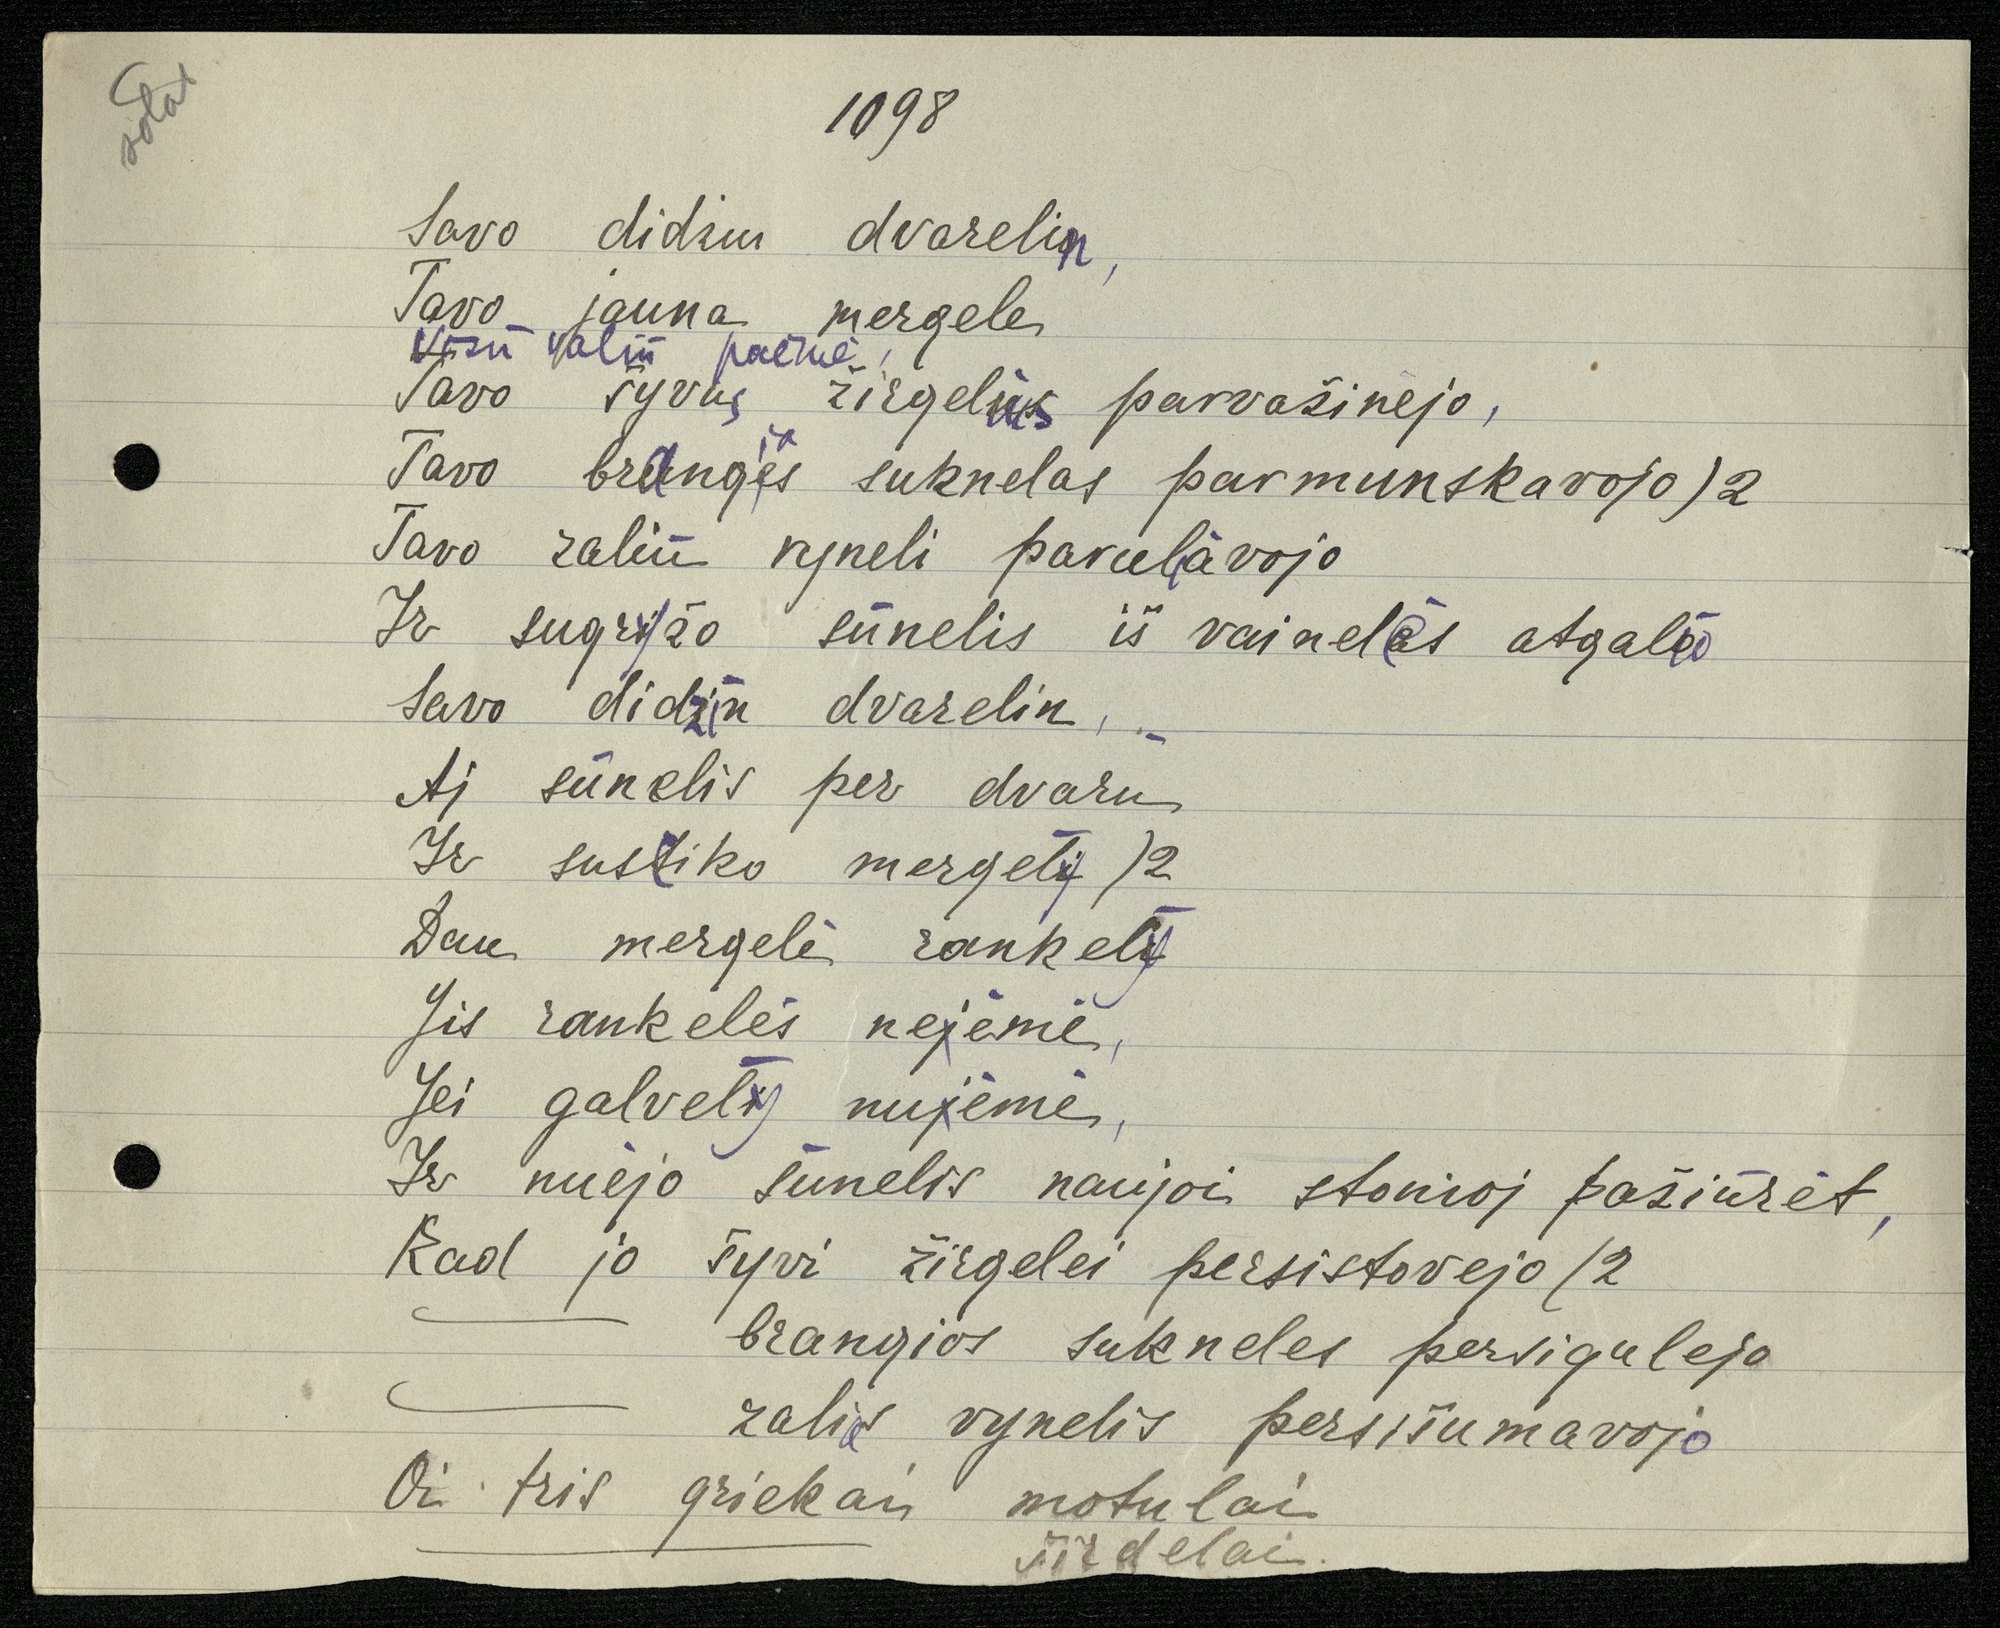 1098
Savo didziu dvarelin,
Tavo jauna mergele
Visū valiū paėmė,
Tavo šyvus žirgelius parvašinėjo,
Tavo brangias suknelas parmunskavojo)2
Tavo zaliū vyneli parulavojo
Ir sugrįžo sūnelis iš vainelės atgalio
Savo didžin dvarelin,
Aj sūnelis per dvarū
Ir sustiko mergelȳ )2
Dau mergelė rankelȳ
Jis rankelės neėmė,
Jei galvelȳ nuėmė,
Ir nuėjo sūnelis naujoi stonioj pažiūrėt,
Kad jo šyvi žirgelei persistovejo (2
brangios sukneles persigulejo
zalias vynelis persišumavojo
Oi tris griekai motulai
širdelai.